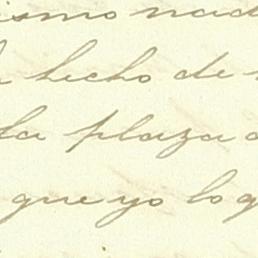 ismo nad
hecho de
la plaza
que yo lo q